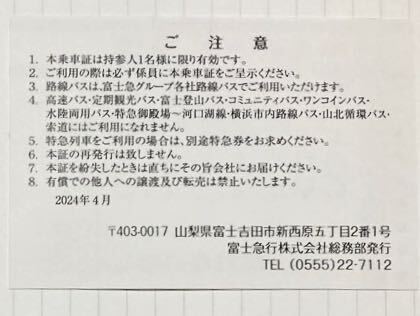 ご注意
1. 本乗車証は持参人1名様に限り有効です。
2. ご利用の際は必ず係員に本乗車証をご呈示ください。
3. 路線バスは､富士急グループ各社路線バスでご利用いただけます。
4. 高速バス･定期観光バス･富士登山バス･コミュニティバス･ワンコインバス･
水陸両用バス･特急御殿場～河口湖線･横浜市内路線バス･山北循環バス･
索道にはご利用になれません。
5. 特急列車をご利用の場合は､別途特急券をお求めください。
6. 本証の再発行は致しません。
7. 本証を紛失したときは直ちにその旨会社にお届けください。
8. 有償での他人への譲渡及び転売は禁止いたします。
2024年4月
〒403-0017 山梨県富士吉田市新西原五丁目2番1号
富士急行株式会社総務部発行
TEL (0555)22-7112